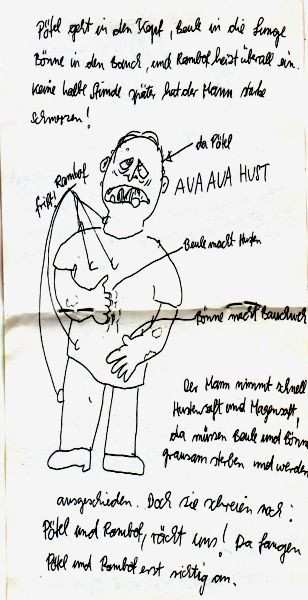 Pötel geht in den Kopf, Beule in die Lunge
Bönne in den Bauch, und Rombof heizt überall ein.
Keine halbe Stunde später hat der Mann starke
Schmerzen!
da Pötel
frißt! Rombof
AUA AUA HUST
Beule macht Husten
Bönne macht Bauchweh
Der Mann nimmt schnell
Hustensaft und Magensaft,
da müssen Beule und Bönne
grausam sterben und werden
ausgeschieden. Doch sie schreien noch:
Pötel und Rombof, rächt uns! Da fangen
Pötel und Rombof erst richtig an.